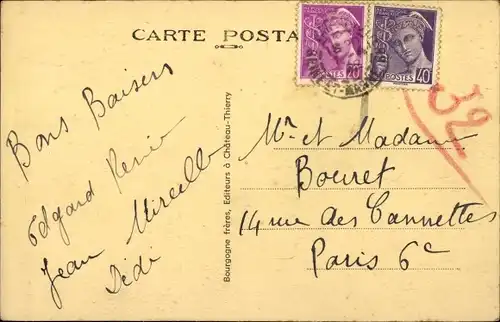 CARTE POSTA
POSTES
POSTES
40
32
Bons Baisers
Edgard Renée
Jean Mireille
Dédé
Bourgogne frères, Editeurs à Château-Thierry
Mr et Madame
Bouret
14 rue des Cannettes
Paris 6e